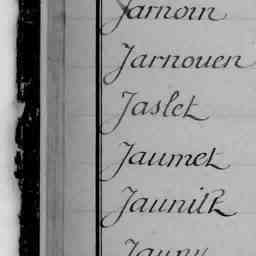 Jarnoin
Jarnouen
Jaslet
Jaumet
Jaunilk